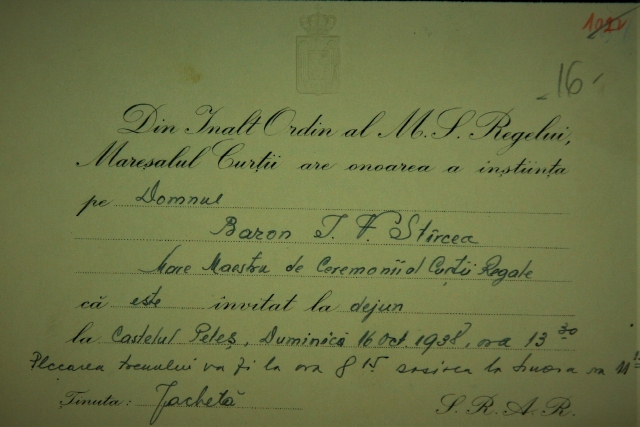 1022
16
Din Inalt Ordin al M. S. Regelui,
Mareșalul Curții are onoarea a înștiința
pe Domnul
Baron I. V. Stîrcea
Mare Maestru de Ceremonii al Curții Regale
că este invitat la dejun
la Castelul Peleș, Duminică 16 oct. 1938, ora 13 30
Plecarea trenului va fi la ora 8 15 sosirea la Sinaia ora 11
Ținuta: Jachetă S. R. A. R.